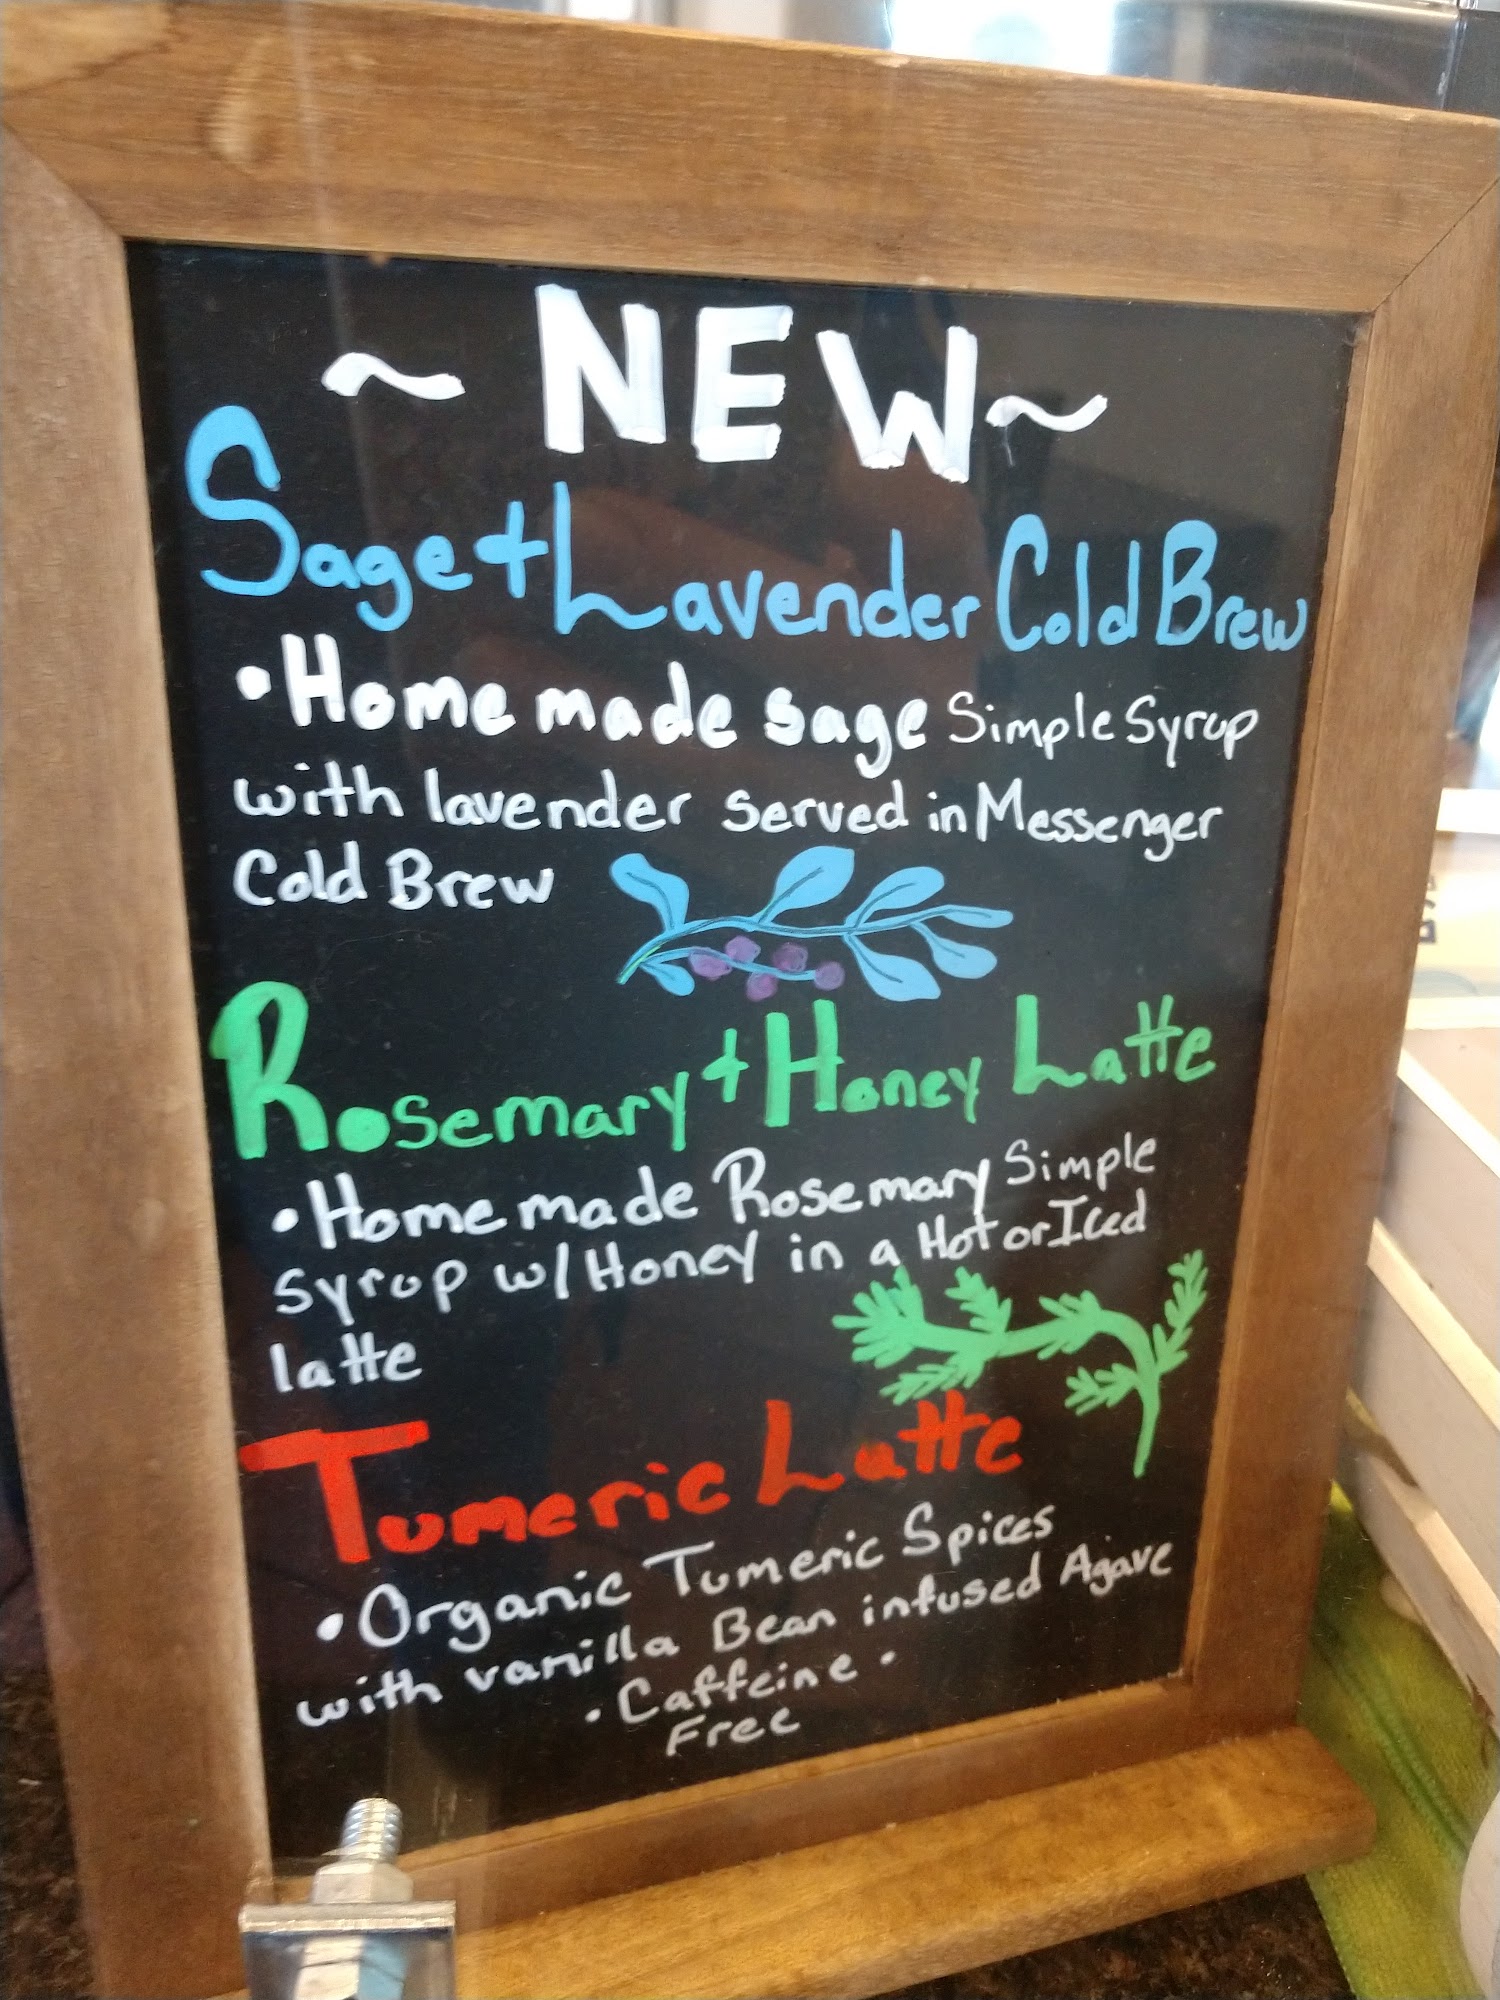 ~ NEW ~
Sage + Lavender Cold Brew
• Homemade sage Simple Syrup
with lavender served in Messenger
Cold Brew
Rosemary + Honey Latte
• Homemade Rosemary Simple
Syrup w/ Honey in a Hot or Iced
latte
Tumeric Latte
• Organic Tumeric Spices
with vanilla Bean infused Agave
• Caffeine •
Free